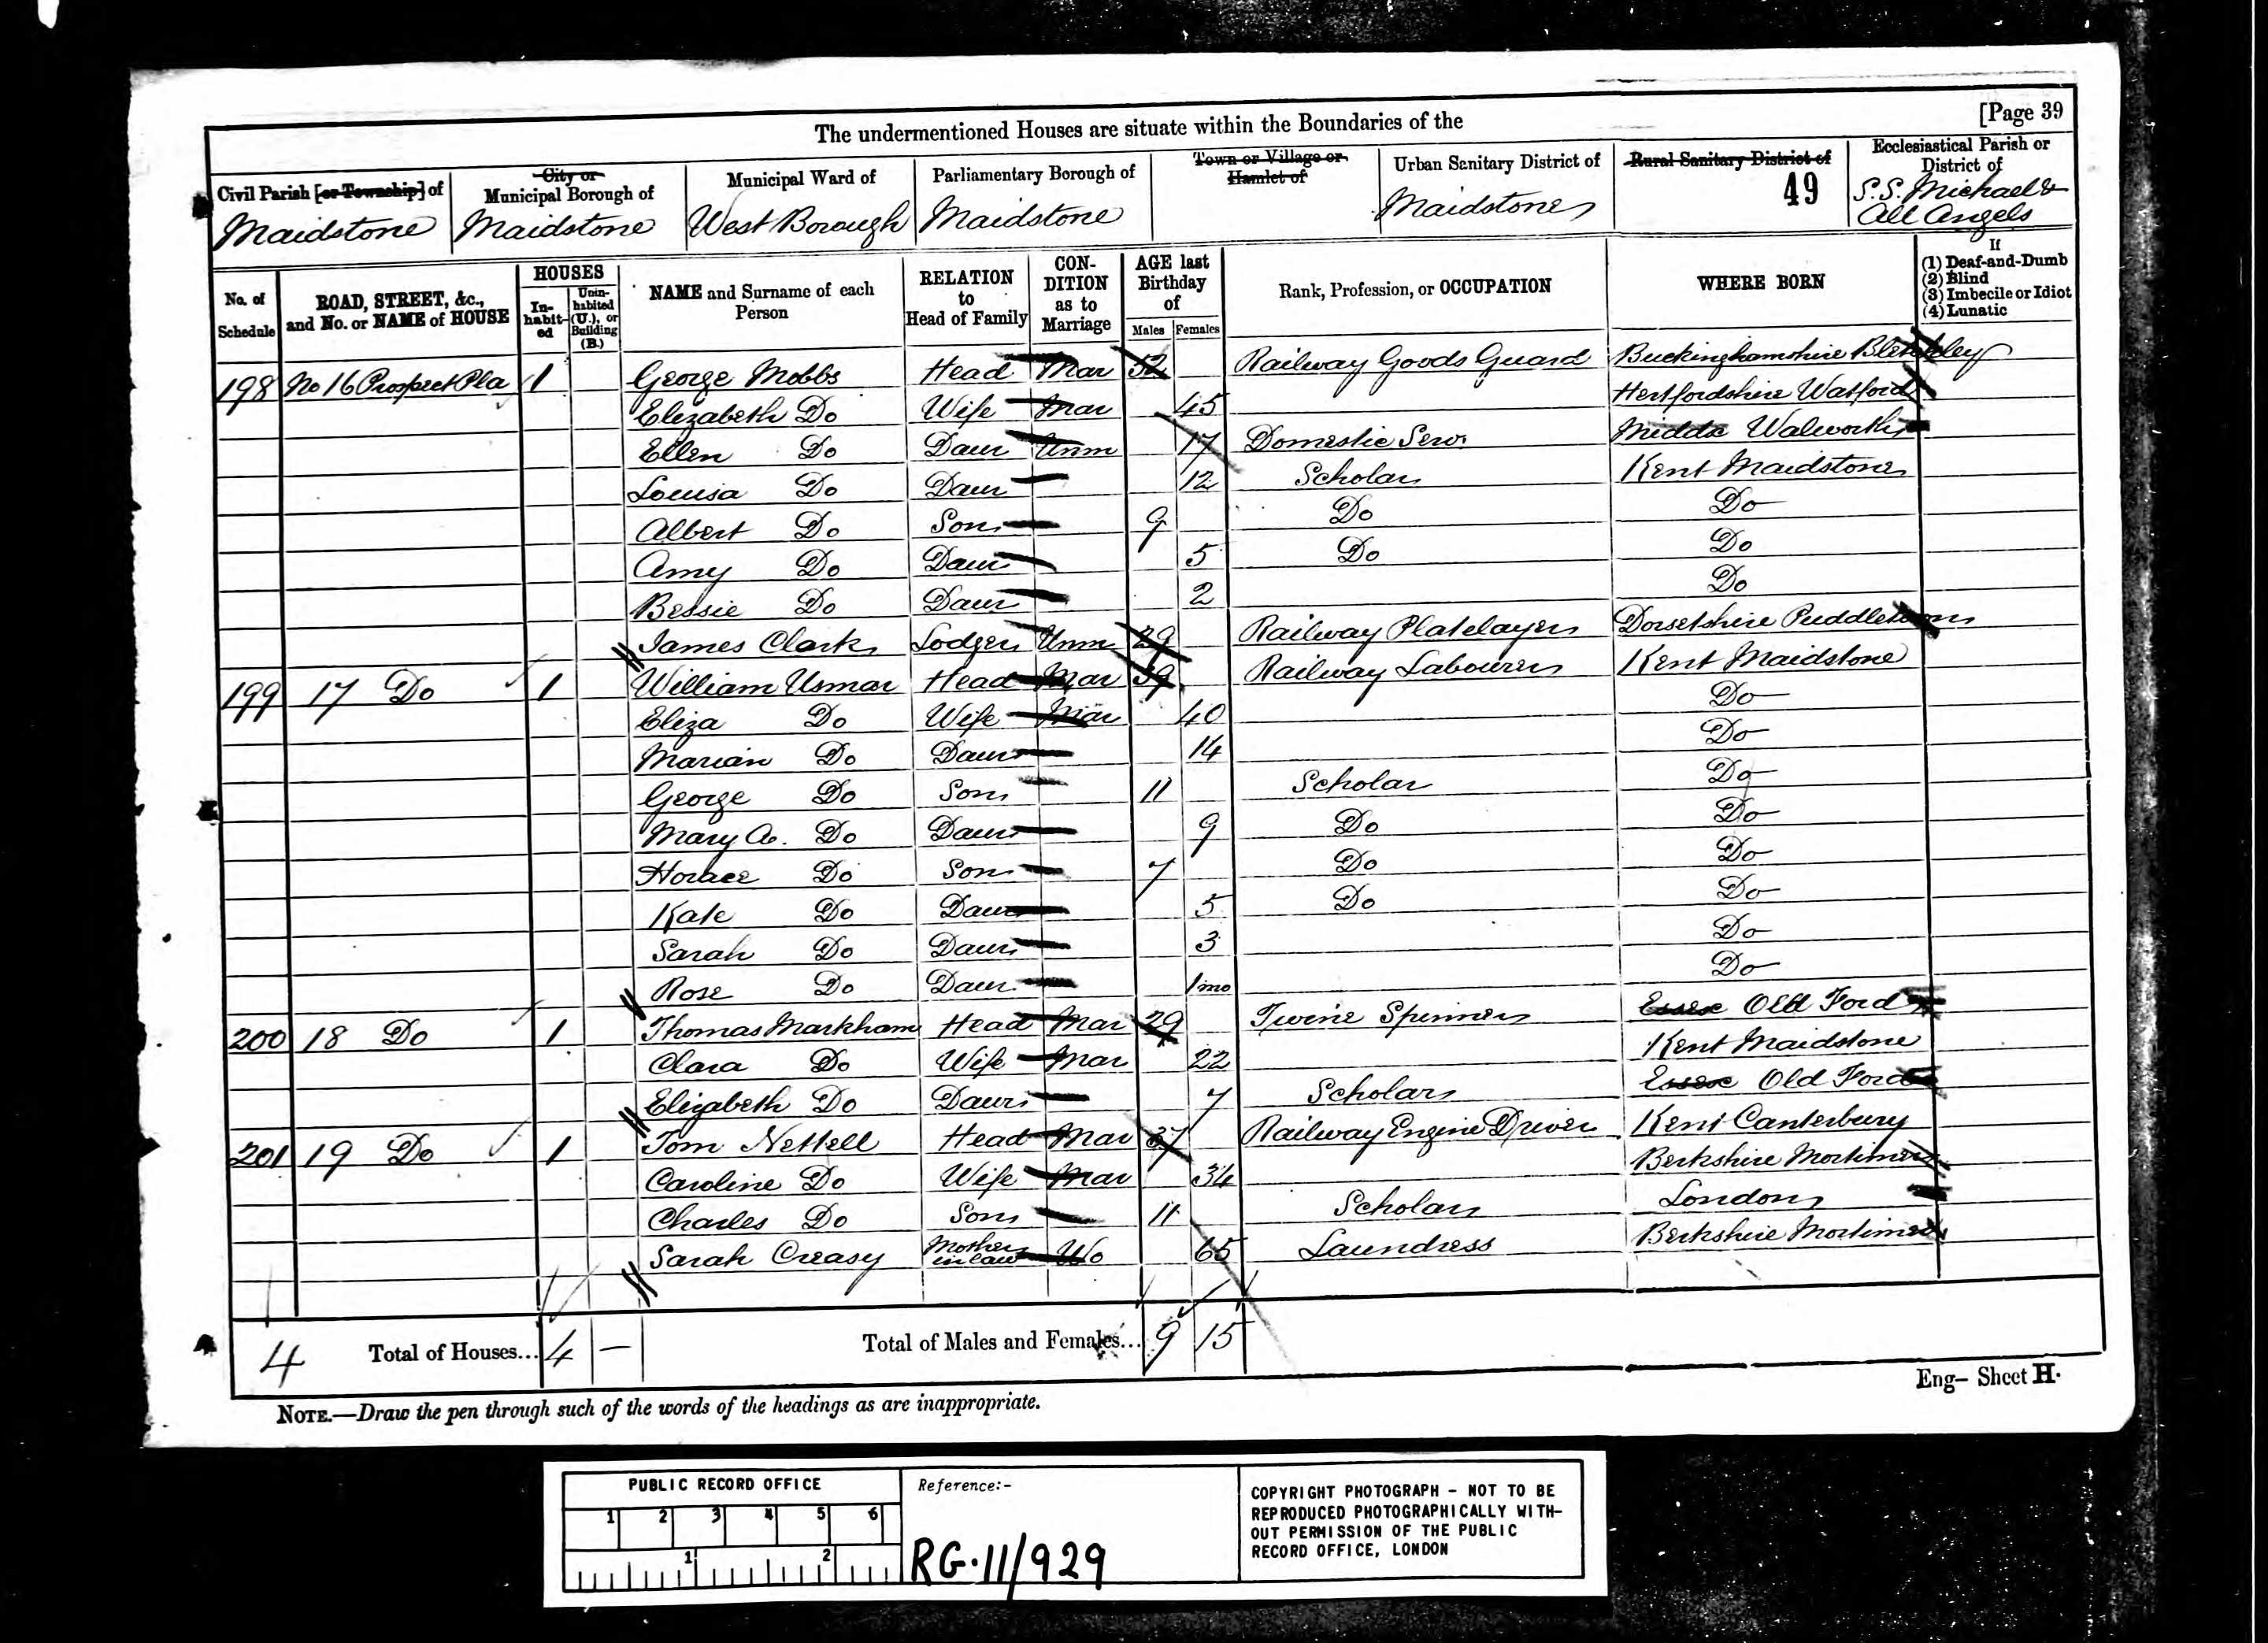 The undermentioned Houses are situate within the Boundaries of the [Page 39
Civil Parish [or Township] of Maidstone
City or Municipal Borough of Maidstone
Municipal Ward of West Borough
Parliamentary Borough of Maidstone
Town or Village or Hamlet of
Urban Sanitary District of Maidstone
Rural Sanitary District of 49
Ecclesiastical Parish or District of S.S. Michael & All Angels
No. of Schedule
ROAD, STREET, &c., and No. or NAME of HOUSE
HOUSES
In-habit-ed
Unin-habited (U.), or Building (B.)
NAME and Surname of each Person
RELATION to Head of Family
CON-DITION as to Marriage
AGE last Birthday of
Males Females
Rank, Profession, or OCCUPATION
WHERE BORN
If
(1) Deaf-and-Dumb
(2) Blind
(3) Imbecile or Idiot
(4) Lunatic
198 No 16 Prospect Pla 1 George Mobbs Head Mar 52 Railway Goods Guard Buckinghamshire Bletchley
Elizabeth Do Wife Mar 45 Hertfordshire Watford
Ellen Do Daur Unm 17 Domestic Serv Middx Walworth
Louisa Do Daur 12 Scholar Kent Maidstone
Albert Do Son 9 Do Do
Amy Do Daur 5 Do Do
Bessie Do Daur 2 Do
James Clark Lodger Unm 29 Railway Platelayer Dorsetshire Puddletown
199 17 Do 1 William Usmar Head Mar 39 Railway Labourer Kent Maidstone
Eliza Do Wife Mar 40 Do
Marian Do Daur 14 Do
George Do Son 11 Scholar Do
Mary A. Do Daur 9 Do Do
Horace Do Son 7 Do Do
Kate Do Daur 5 Do Do
Sarah Do Daur 3 Do
Rose Do Daur 1 mo Do
200 18 Do 1 Thomas Markham Head Mar 29 Twine Spinner Essex Old Ford
Clara Do Wife Mar 22 Kent Maidstone
Elizabeth Do Daur 7 Scholar Essex Old Ford
201 19 Do 1 Tom Nettell Head Mar 37 Railway Engine Driver Kent Canterbury
Caroline Do Wife Mar 34 Berkshire Mortimer
Charles Do Son 11 Scholar London
Sarah Creasy Mother in law Wo 65 Laundress Berkshire Mortimer
4 Total of Houses... 4 — Total of Males and Females... 9 15
Eng– Sheet H.
NOTE.—Draw the pen through such of the words of the headings as are inappropriate.
PUBLIC RECORD OFFICE
1 2 3 4 5 6
1 2
Reference:-
RG·11/929
COPYRIGHT PHOTOGRAPH - NOT TO BE
REPRODUCED PHOTOGRAPHICALLY WITH-
OUT PERMISSION OF THE PUBLIC
RECORD OFFICE, LONDON